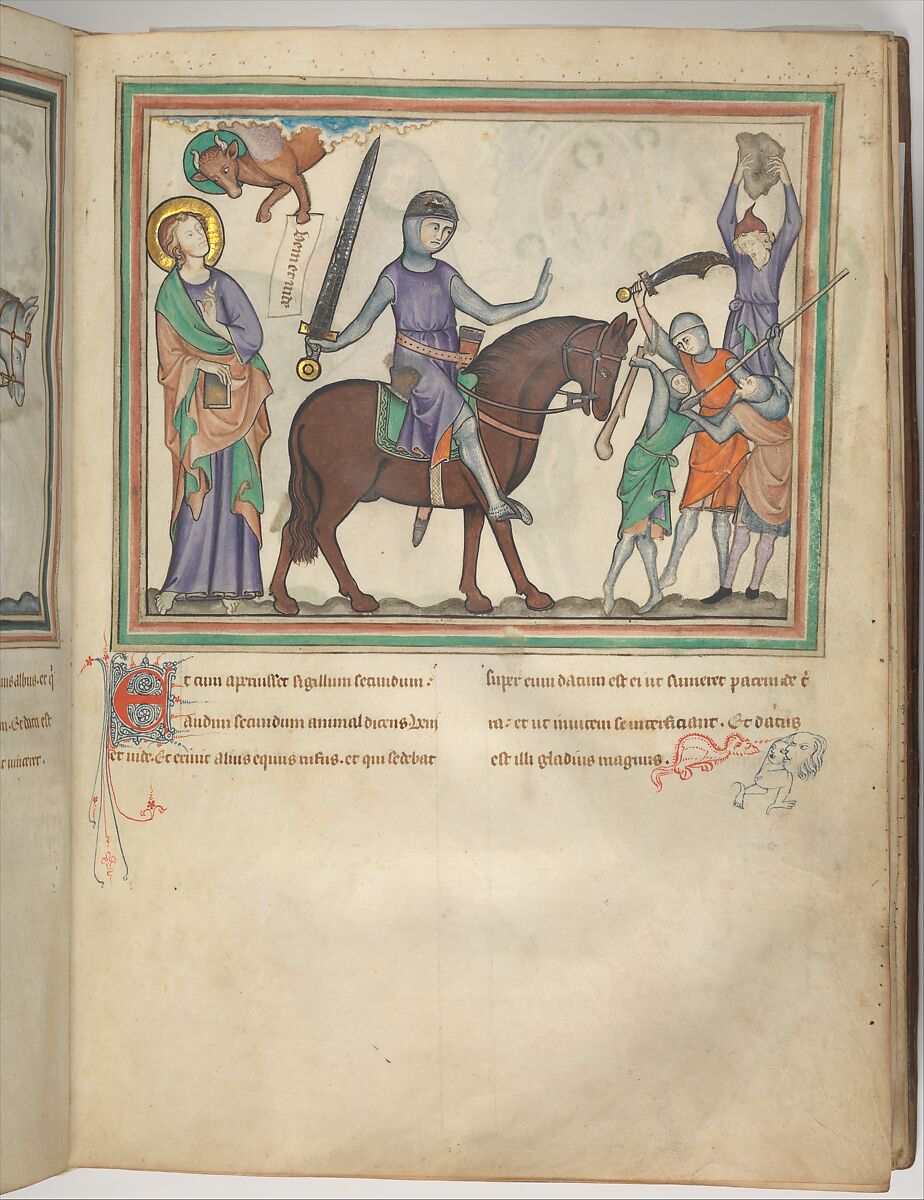 veni et vide
Et cum aperuisset sigillum secundum:
audivi secundum animal dicens Veni
et vide. Et exivit alius equus rufus. et qui sedebat
super eum datum est ei ut sumeret pacem de t̄
ra: et ut invicem se interficiant. Et datus
est illi gladius magnus.
albus. et q
. Et data est
vinceret.